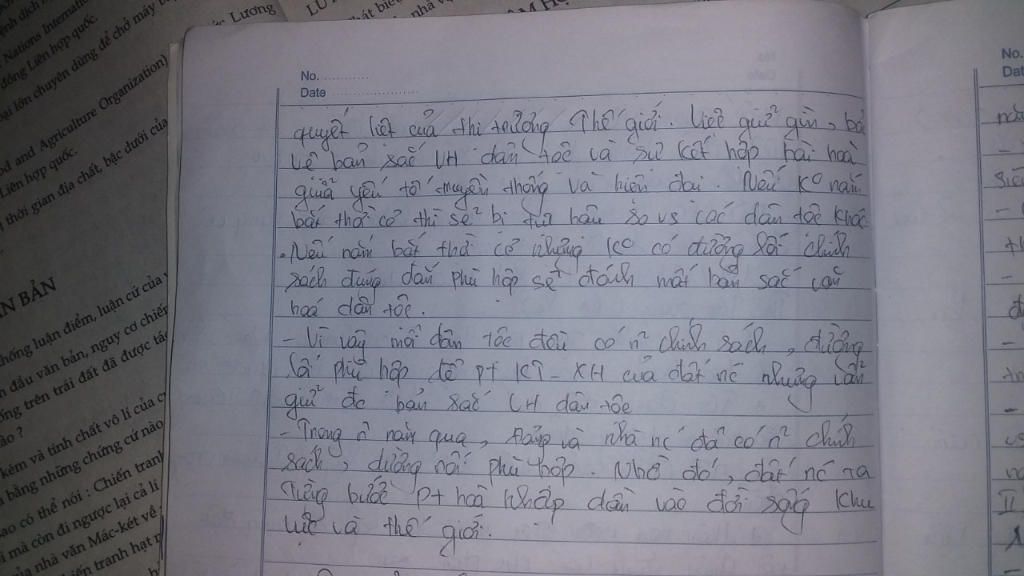 ức Lương
Nations Internation
đồng Liên hợp quốc.
loại lớn chuyên dùng để chở máy b
od and Agriculture Organization)
Liên hợp quốc.
thời gian địa chất, bậc dưới của
ĂN BẢN
hống luận điểm, luận cứ của v
n đầu văn bản, nguy cơ chiến
ống trên trái đất đã được tá
ào ?
kém và tính chất vô lí của c
a bằng những chứng cứ nào
ao có thể nói : Chiến tranh
í mà còn đi ngược lại cả lí
của nhà văn Mác-két về
No.
Date
quyết liệt của thị trường Thế giới. Việc giữ gìn, bả
vệ bản sắc VH dân tộc và sự kết hợp hài hoà
giữa yếu tố truyền thống và hiện đại. Nếu Ko nắm
bắt thời cơ thì sẽ bị tụt hậu so vs các dân tộc khác
. Nếu nắm bắt thời cơ nhưng Ko có đường lối chính
sách đúng đắn phù hợp sẽ đánh mất bản sắc văn
hoá dân tộc.
- Vì vậy mỗi dân tộc đều có n² chính sách, đường
lối phù hợp để pt KT - XH của đất nc nhưng vẫn
giữ đc bản sắc VH dân tộc
- Trong n năm qua, Đảng và nhà nc đã có n² chính
sách, đường nối phù hợp. Nhờ đó, đất nc ta
từng bước pt hoà nhập dần vào đời sống khu
vực và thế giới.
No.
Dat
II